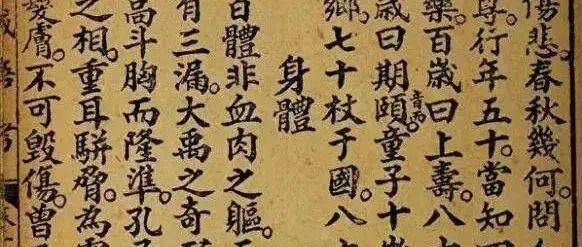 傷悲。春秋幾何。問
尊。行年五十。當知
藥。百歲曰上壽。八
歲曰期頤。童子十
鄉。七十杖于國。八
身體
百體非血肉之軀。五
有三漏。大禹之奇
高斗胸而隆準。孔
之相。重耳駢脅。為
髮膚。不可毀傷。曾
成語考